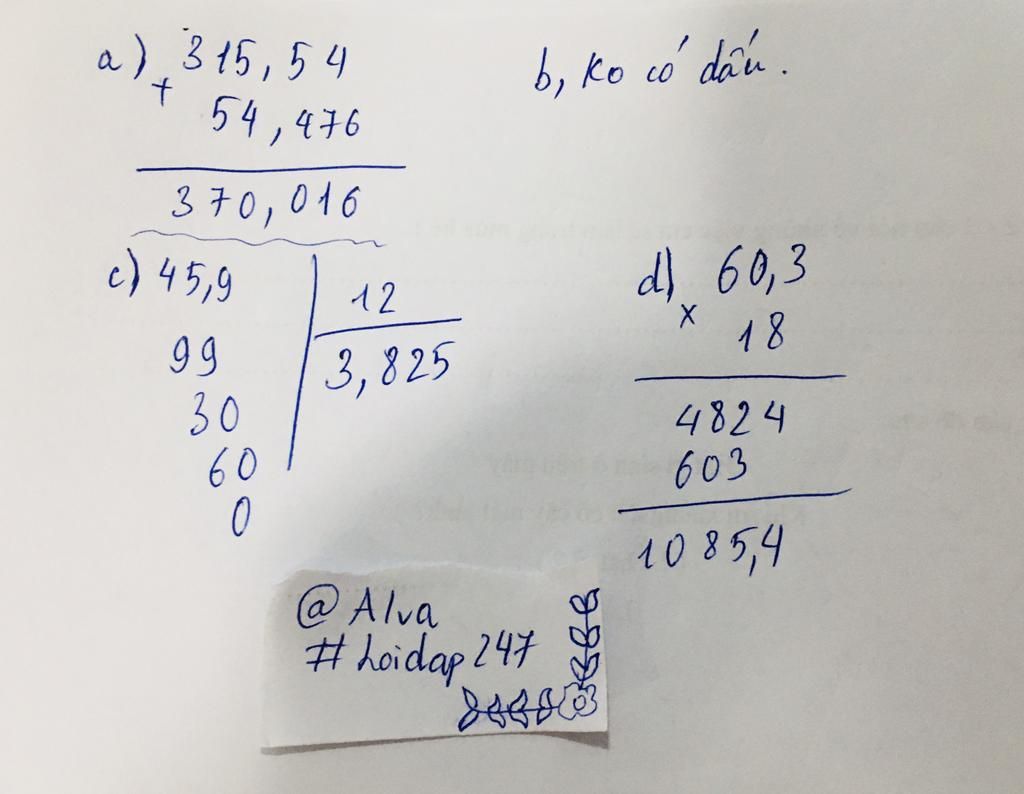 a) 315,54
+
54,476
370,016
b, ko có dấu.
c) 45,9
12
99
3,825
30
60
0
d) 60,3
x
18
4824
603
1085,4
@Alva
#hoidap247